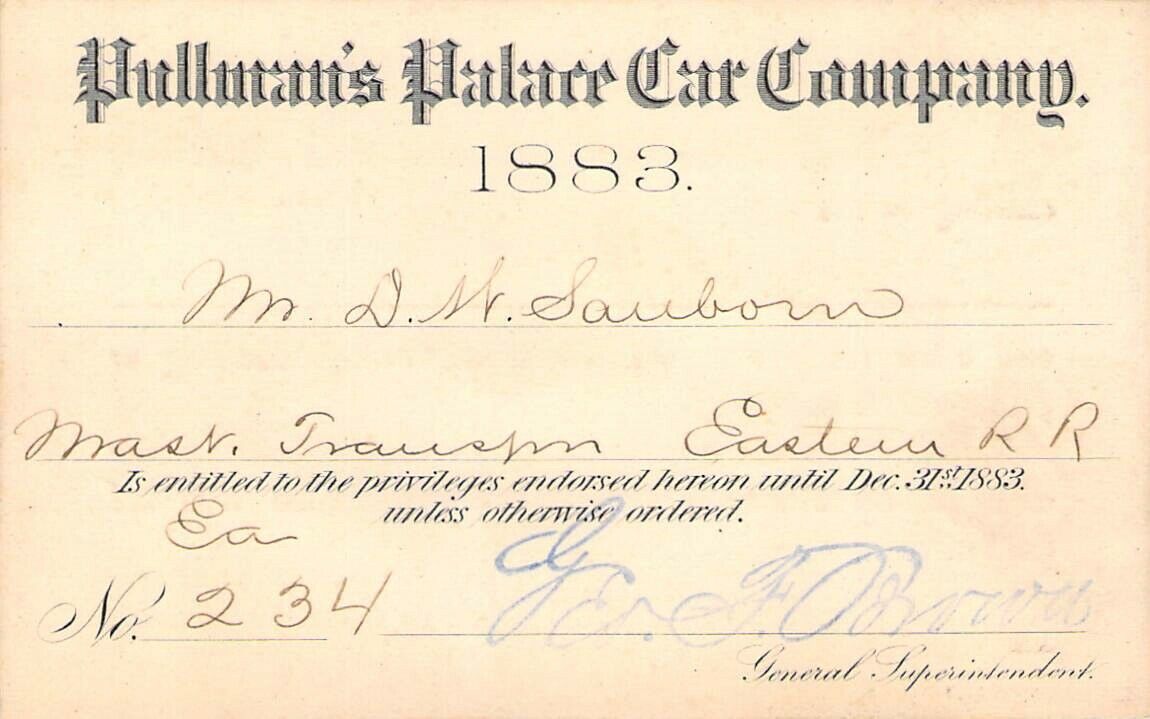 Pullman's Palace Car Company.
1883.
Mr. D. W. Sanborn
Mast. Transpn Eastern R R
Is entitled to the privileges endorsed hereon until Dec. 31st 1883.
unless otherwise ordered.
Ea
No. 234
Geo. F. Brown
General Superintendent.